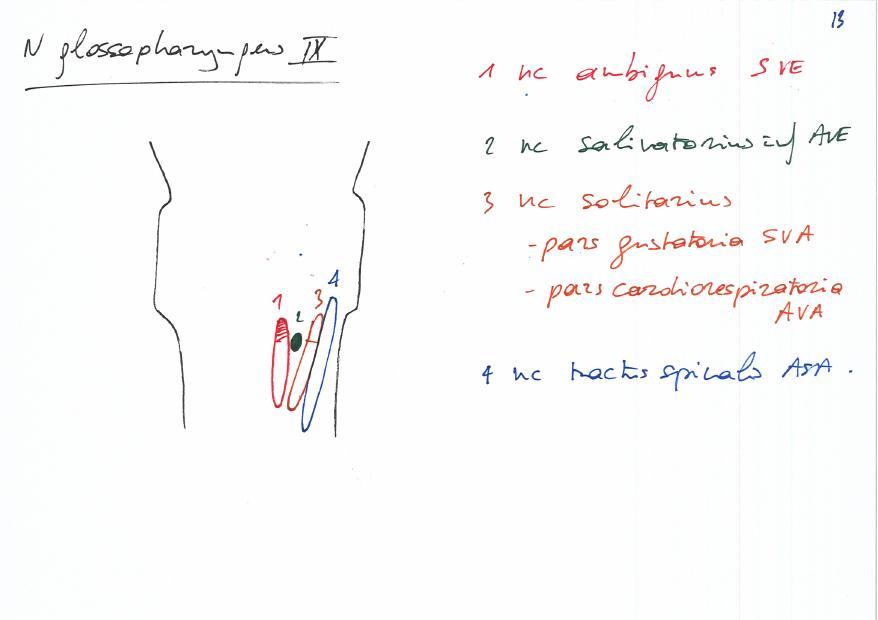 13
N glossopharyngeus IX
1 nc ambiguus SVE
2 nc salivatorius inf AVE
3 nc solitarius
- pars gustatoria SVA
- pars cardiorespiratoria
AVA
4 nc tractus spinalis ASA .
4
1 2 3